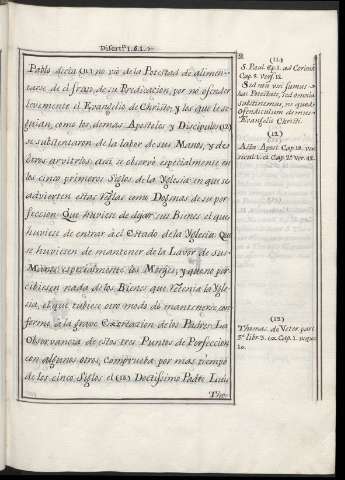 Disert.n 1.a §. 1.o
Pablo dicta (11) no vió de la Potestad de alimen-
tarse de el fruto de su Predicacion, por no ofender
levemente el Evangelio de Christo, y los que le se-
guian, como los demas Apostoles y Discipulos (12)
se sustentaron de la labor de sus Manos, y de
otros arvitrios, asi se observó especialmente en
los cinco primeros Siglos de la Yglesia en que se
advierten estas Reglas como Dogmas de su per-
feccion Que huviese de dejar sus Bienes el que
huviese de entrar á el Estado de la Yglesia: Que
se huviesen de mantener de la Lavor de sus
Manos especialmente los Monjes, y que no per-
cibiesen nada de los Bienes que tthenia la Ygle-
sia, el que tubiese otro modo de mantenerse con-
forme á la grave Exortacion de los Padres. La
Observancia de estos tres Puntos de Perfeccion
con algunos otros, comprueba por mas tiempo
de los cinco Siglos el (13) Doctissimo Padre Luis
Tho-
(11)
S. Paul. Ep. 1. ad Corint.
Cap. 9. vers. 12.
Sed non usi sumus
hac Potestate, sed omnia
sustinemus, ne quod
offendiculum demus
Evangelio Christi.
(12)
Acta Apost. Cap. 18. ver-
sicul. 3. et Cap. 20. ver. 48.
(13)
Thomas. de Veter. part.
3.a lib. 3. in Cap. 1. usque
10.